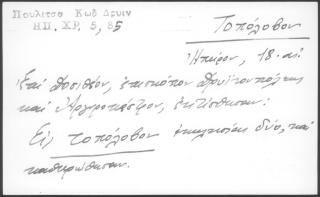 Πουλιτσα Κωδ Δρυιν
ΗΠ. ΧΡ, 5, 85
Τοπόλοβον
Ηπείρου, 18. αἰ.
Ἐπί Δοσιθέου, ἐπισκόπου Δρυϊνουπόλεως
καί Ἀργυροκάστρου, ἐκτίσθησαν:
Εἰς Τοπόλοβον ἐκκλησίαι δύο, καί
καθιερώθησαν.